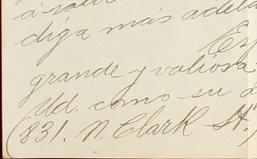 diga mas adela
Es
grande y valiosa
Ud. como su a
(831. N. Clark St.